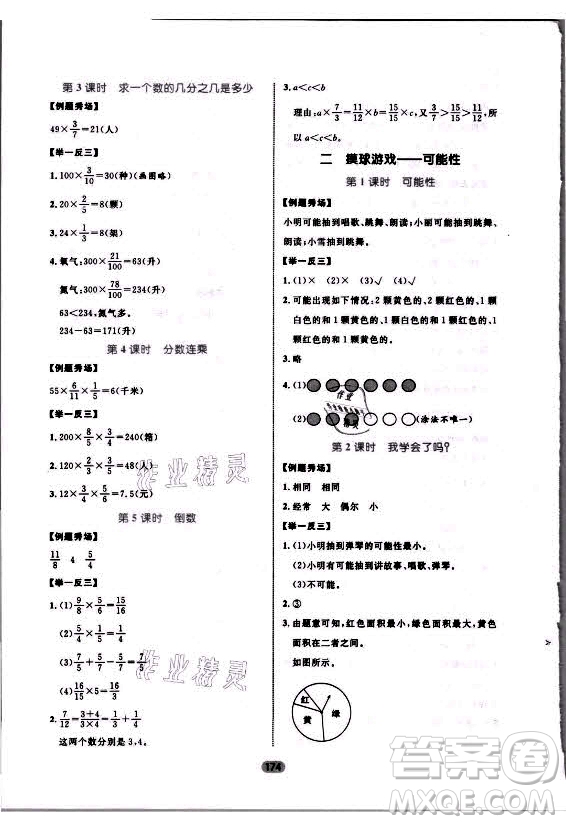 第 3 课时　求一个数的几分之几是多少
【例题秀场】
49×3/7=21(人)
【举一反三】
1. 100×3/10=30(种)(画图略)
2. 20×2/5=8(颗)
3. 24×1/3=8(架)
4. 氧气：300×21/100=63(升)
氮气：300×78/100=234(升)
63<234，氮气多。
234-63=171(升)
第 4 课时　分数连乘
【例题秀场】
55×6/11×1/5=6(千米)
【举一反三】
1. 200×8/5×3/4=240(箱)
2. 120×1/2×4/5=48(人)
3. 12×3/4×5/6=7.5(元)
第 5 课时　倒数
【例题秀场】
11/8　4　5/4
【举一反三】
1. (1) 9/8×5/6=15/16
(2) 1/4×5=5/4
(3) 7/5+7/5-7/5=7/5
(4) 16/15×5=16/3
2. 7/12=3+4/3×4=1/3+1/4
这两个数分别是 3、4。
3. a<c<b
理由：a×7/3=11/12×b=15/15×c，又3/7>15/15>11/12，所
以a<c<b。
二　摸球游戏——可能性
第 1 课时　可能性
【例题秀场】
小明可能抽到唱歌、跳舞、朗读；小丽可能抽到跳舞、
朗读；小雪抽到跳舞。
【举一反三】
1. (1)×　(2)×　(3)√　(4)√
2. 可能出现如下情况：2 颗黄色的、2 颗红色的、1 颗
白色的和 1 颗黄色的、1 颗白色的和 1 颗红色的、1
颗黄色的和 1 颗红色的。
3. 略
4. (1)
(2)　(涂法不唯一)
第 2 课时　我学会了吗？
【例题秀场】
1. 相同　相同
2. 经常　大　偶尔　小
【举一反三】
1. (1)小明抽到弹琴的可能性最小。
(2)小明有可能抽到讲故事、唱歌、弹琴。
(3)不可能。
2. ③
3. 由题意可知，红色面积最小，绿色面积最大，黄色
面积在二者之间。
如图所示。
红
黄
绿
174
作业精灵
作业精灵
作业
精灵
答案圈
MXQE.COM